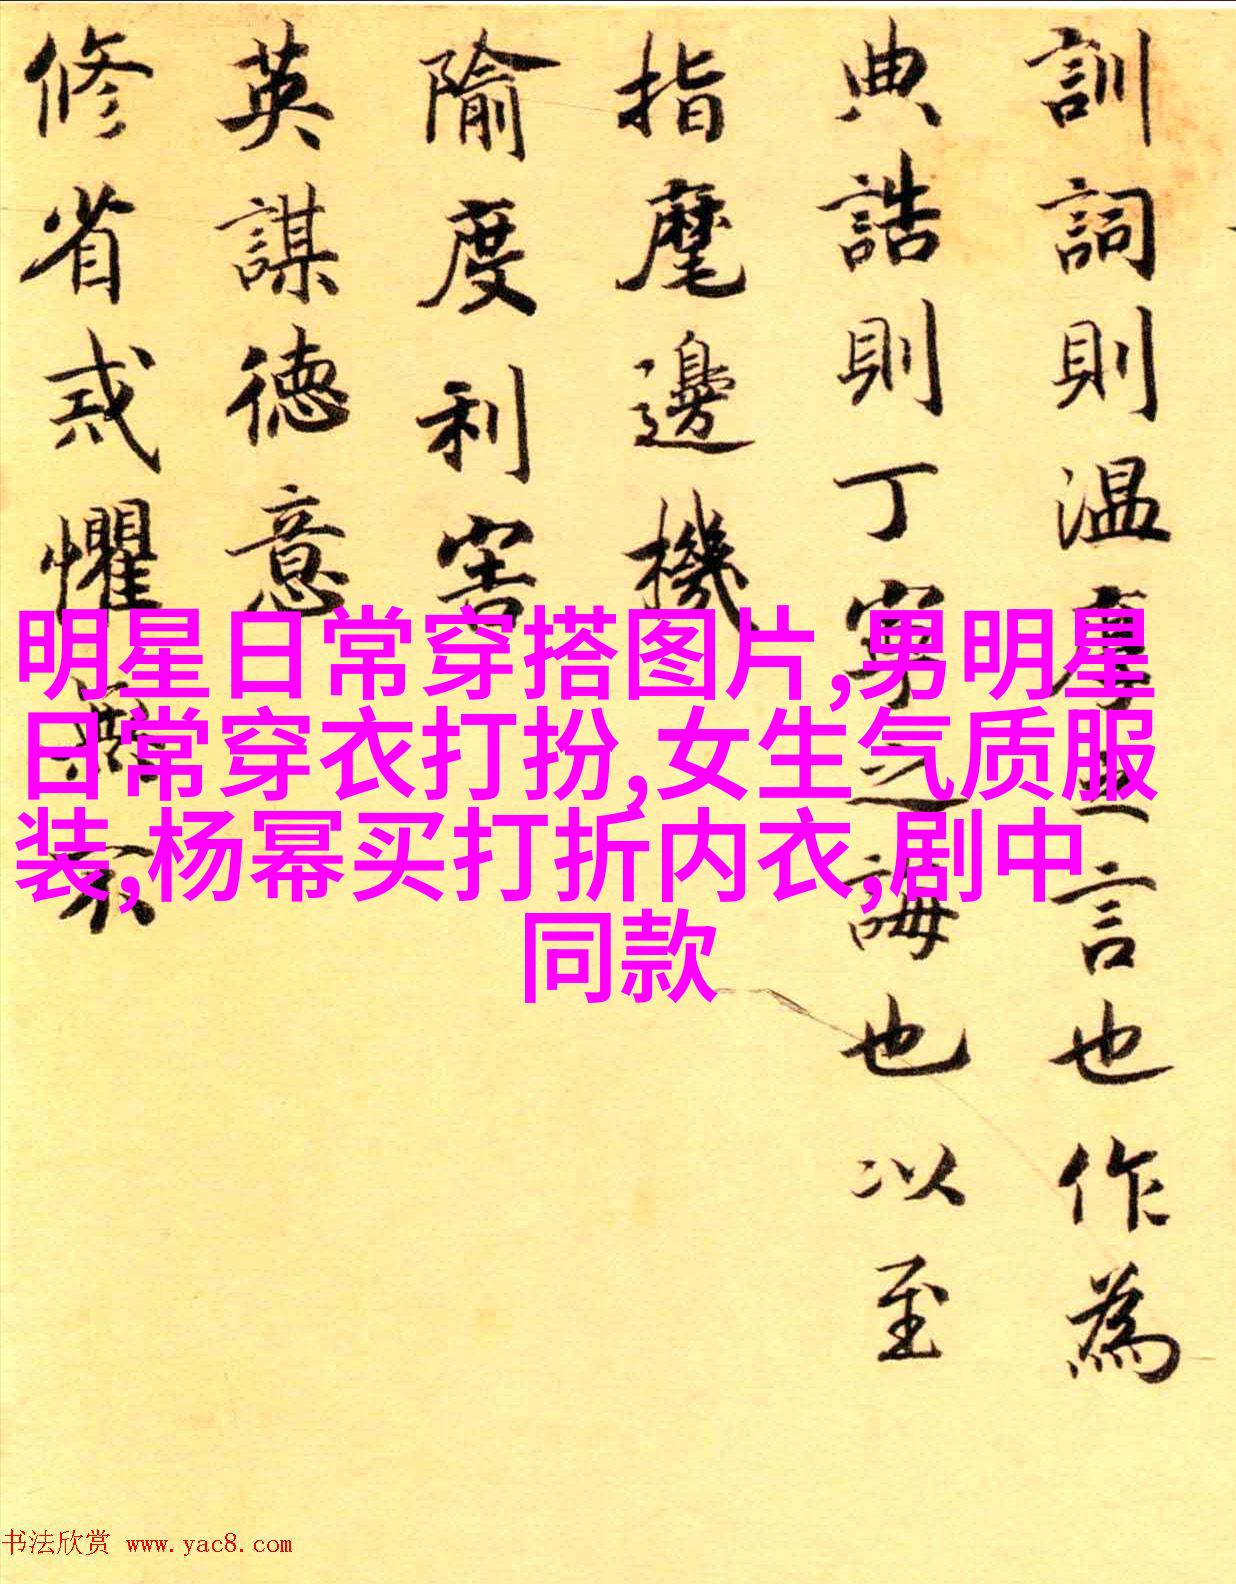 訓詞則温厚之言也作為
典誥則丁寧之誨也以至
指麾邊機
隃度利害
英謀德意
修省戒懼
明星日常穿搭图片,男明星
日常穿衣打扮,女生气质服
装,杨幂买打折内衣,剧中
同款
书法欣赏 www.yac8.com